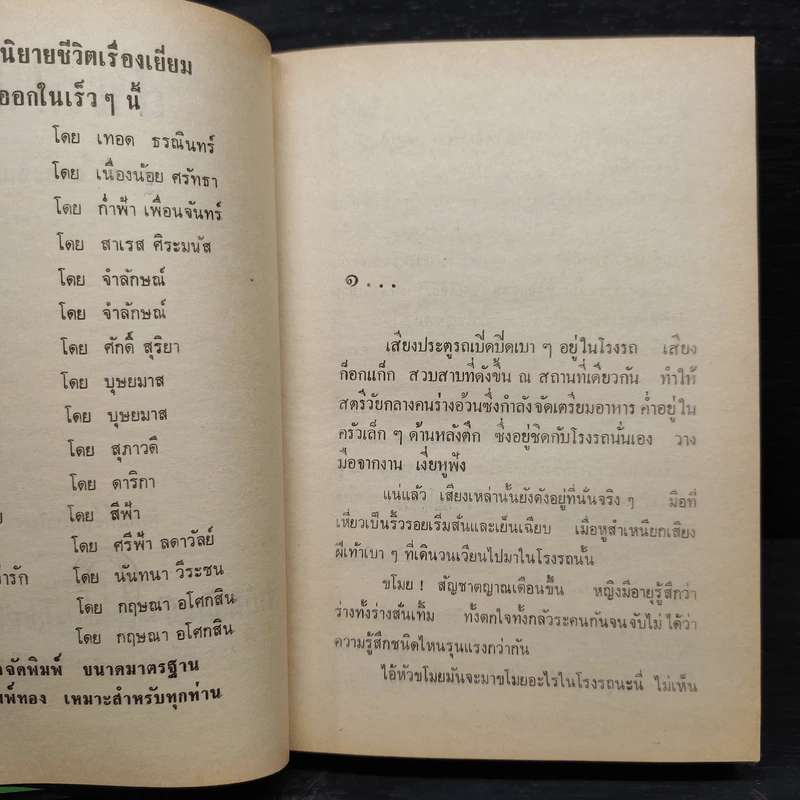 นิยายชีวิตเรื่องเยี่ยม
ออกในเร็ว ๆ นี้
โดย เทอด ธรณินทร์
โดย เนื่องน้อย ศรัทธา
โดย ก่ำฟ้า เพื่อนจันทร์
โดย สาเรส ศิระมนัส
โดย จำลักษณ์
โดย จำลักษณ์
โดย ศักดิ์ สุริยา
โดย บุษยมาส
โดย บุษยมาส
โดย สุภาวดี
โดย ดาริกา
โดย สีฟ้า
โดย ศรีฟ้า ลดาวัลย์
โดย นันทนา วีระชน
โดย กฤษณา อโศกสิน
โดย กฤษณา อโศกสิน
จัดพิมพ์ ขนาดมาตรฐาน
เหมาะสำหรับทุกท่าน
๑ . . .
เสียงประตูรถเปิดปิดเบา ๆ อยู่ในโรงรถ เสียง
ก็อกแก็ก สวบสาบที่ดังขึ้น ณ สถานที่เดียวกัน ทำให้
สตรีวัยกลางคนร่างอ้วนซึ่งกำลังจัดเตรียมอาหารค่ำอยู่ใน
ครัวเล็ก ๆ ด้านหลังตึก ซึ่งอยู่ชิดกับโรงรถนั่นเอง วาง
มือจากงาน เงี่ยหูฟัง
แน่แล้ว เสียงเหล่านั้นยังดังอยู่ที่นั่นจริง ๆ มือที่
เหี่ยวเป็นริ้วรอยเริ่มสั่นและเย็นเฉียบ เมื่อหูสำเหนียกเสียง
ฝีเท้าเบา ๆ ที่เดินวนเวียนไปมาในโรงรถนั้น
ขโมย ! สัญชาตญาณเตือนขึ้น หญิงมีอายุรู้สึกว่า
ร่างทั้งร่างสั่นเทิ้ม ทั้งตกใจทั้งกลัวระคนกันจนจับไม่ได้ว่า
ความรู้สึกชนิดไหนรุนแรงกว่ากัน
ไอ้หัวขโมยมันจะมาขโมยอะไรในโรงรถนะนี่ ไม่เห็น